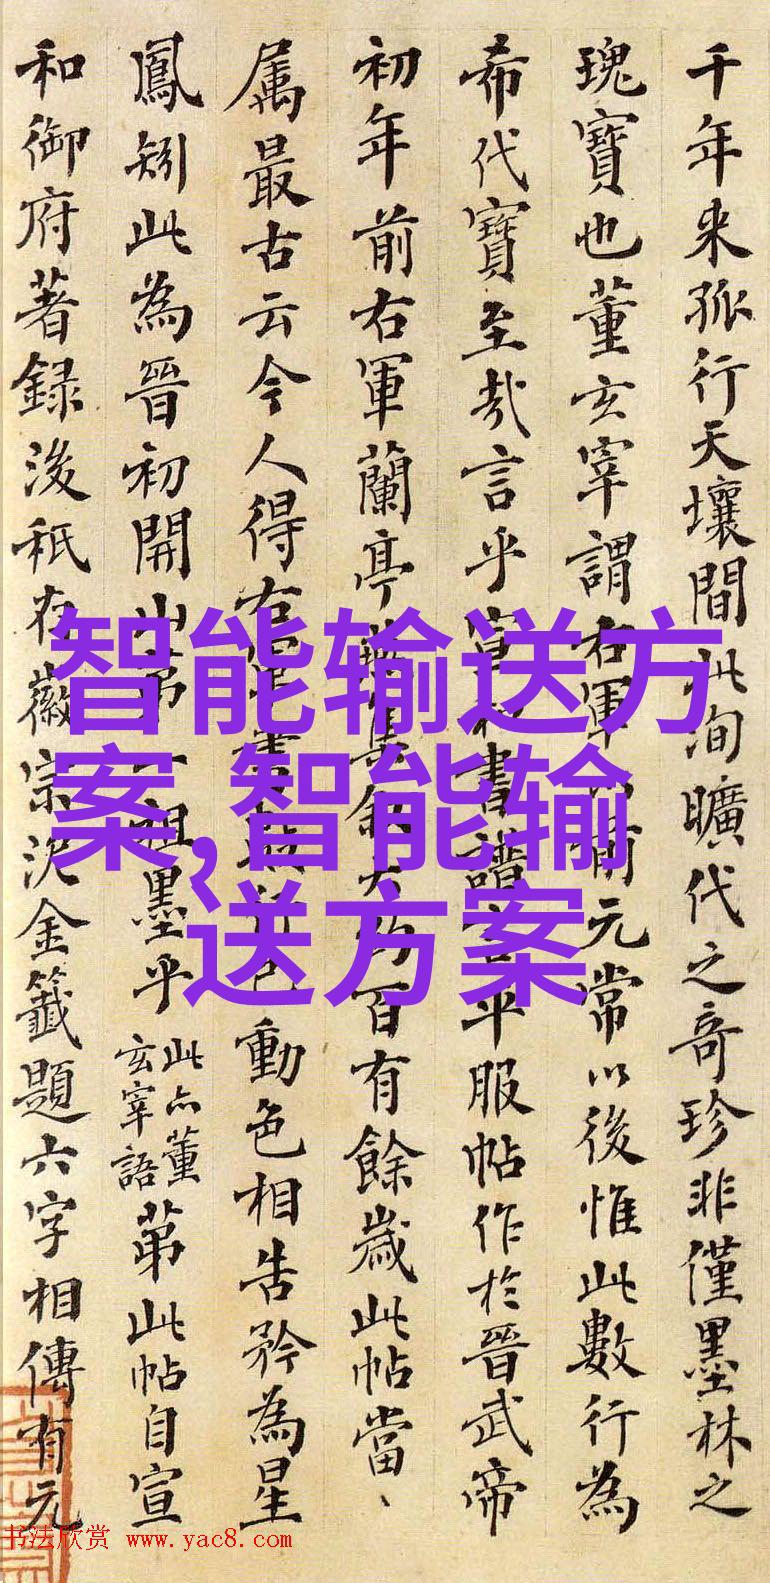 千年来孤行天壤間此洵曠代之奇珍非僅墨林之
瑰寶也董玄宰謂右軍以前元常以後惟此數行為
希代寶至哉言乎宣和書譜言平服帖作於晉武帝
初年前右軍蘭亭燕集敘大約百有餘歲此帖當
属最古云今人得右軍書動色相告矜為星
鳳矧此為晉初開山第一祖墨乎此亦董玄宰語第此帖自宣
和御府著録後秖有徽宗泥金籤題六字相傳有元
智能输送方
案,智能输
送方案
书法欣赏 www.yac8.com